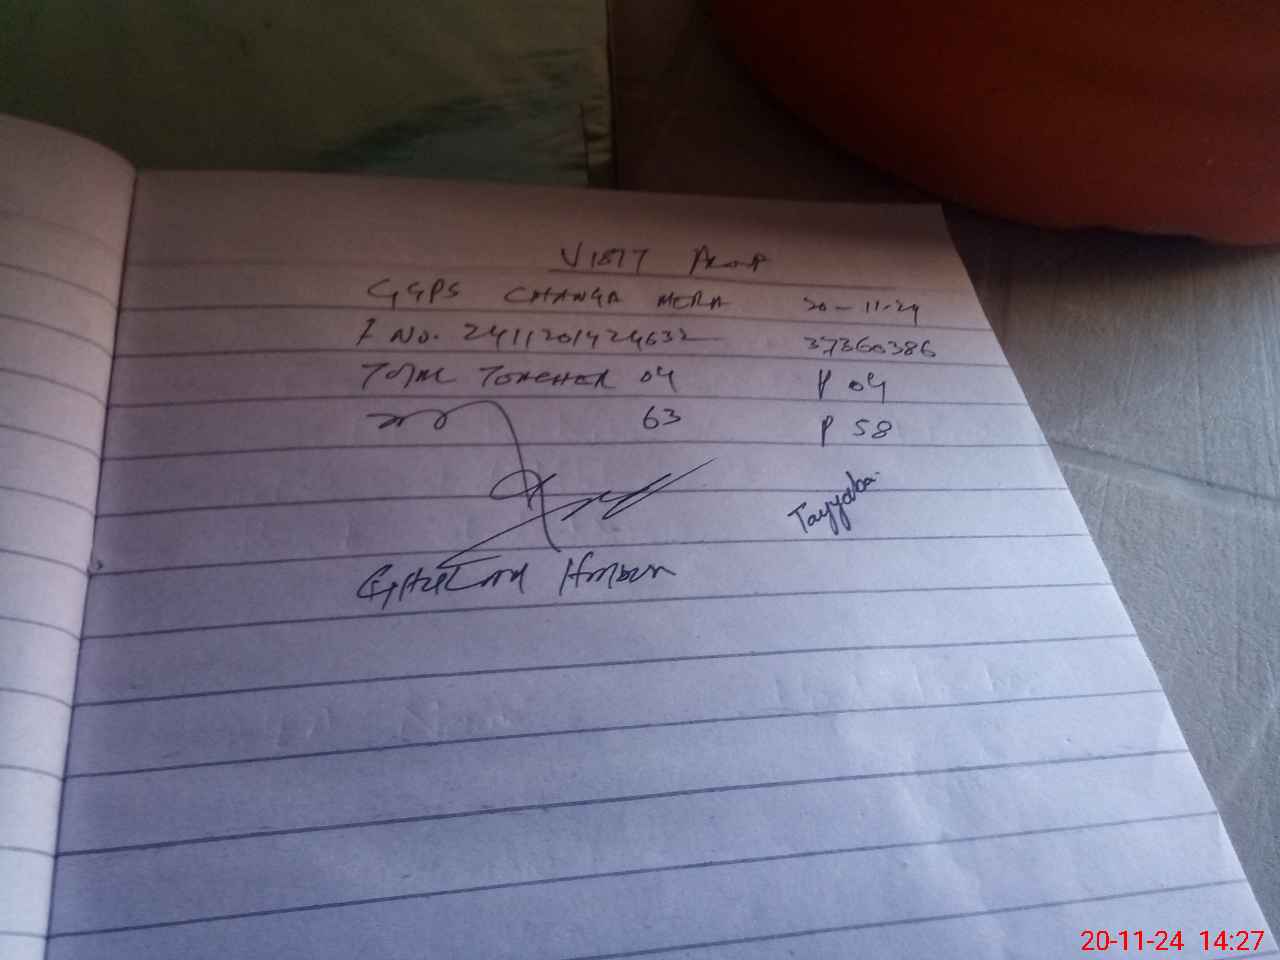 VISIT Proof
GGPS CHANGA MERA 20-11-24
I No. 2411201424632 37360386
TOTAL TEACHER 04 P 04
63 P 58
Tayyaba
20-11-24 14:27